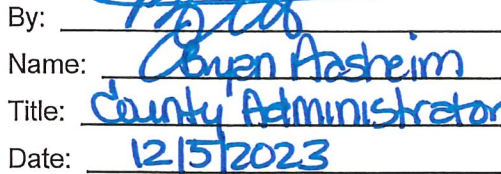 By:
Name: Bryan Aasheim
Title: County Administrator
Date: 12/5/2023